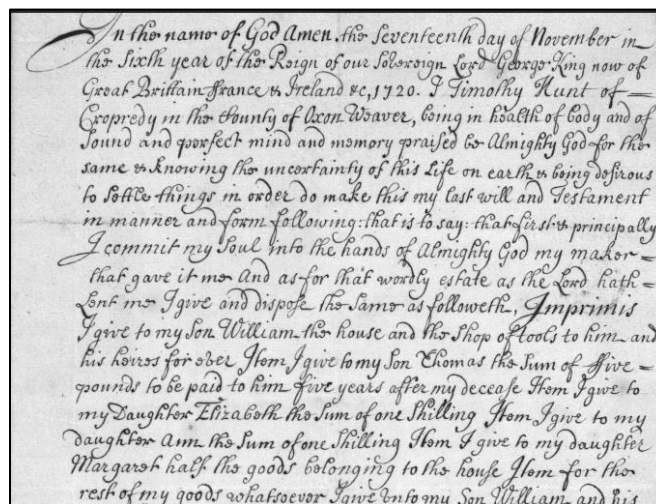 In the name of God Amen. the Seventeenth day of November in
the Sixth year of the Reign of our Sovereign Lord George King now of
Great Brittain ffrance & Ireland &c, 1720. I Timothy Hunt of =
Cropredy in the County of Oxon Weaver, being in health of body and of
Sound and perfect mind and memory praised be Almighty God for the
same & knowing the uncertainty of this Life on earth & being desirous
to settle things in order do make this my last will and Testament
in manner and form following: that is to say: that first & principally
I commit my Soul into the hands of Almighty God my maker =
that gave it me And as for that wordly estate as the Lord hath =
Lent me I give and dispose the Same as followeth, Imprimis
I give to my Son William the house and the Shop of tools to him and
his heires for ever Item I give to my Son Thomas the Sum of ffive =
pounds to be paid to him five years after my decease Item I give to
my Daughter Elizabeth the Sum of one Shilling Item I give to my
daughter Ann the Sum of one Shilling Item I give to my daughter
Margaret half the goods belonging to the house Item for the
rest of my goods whatsoever I give unto my Son William and his